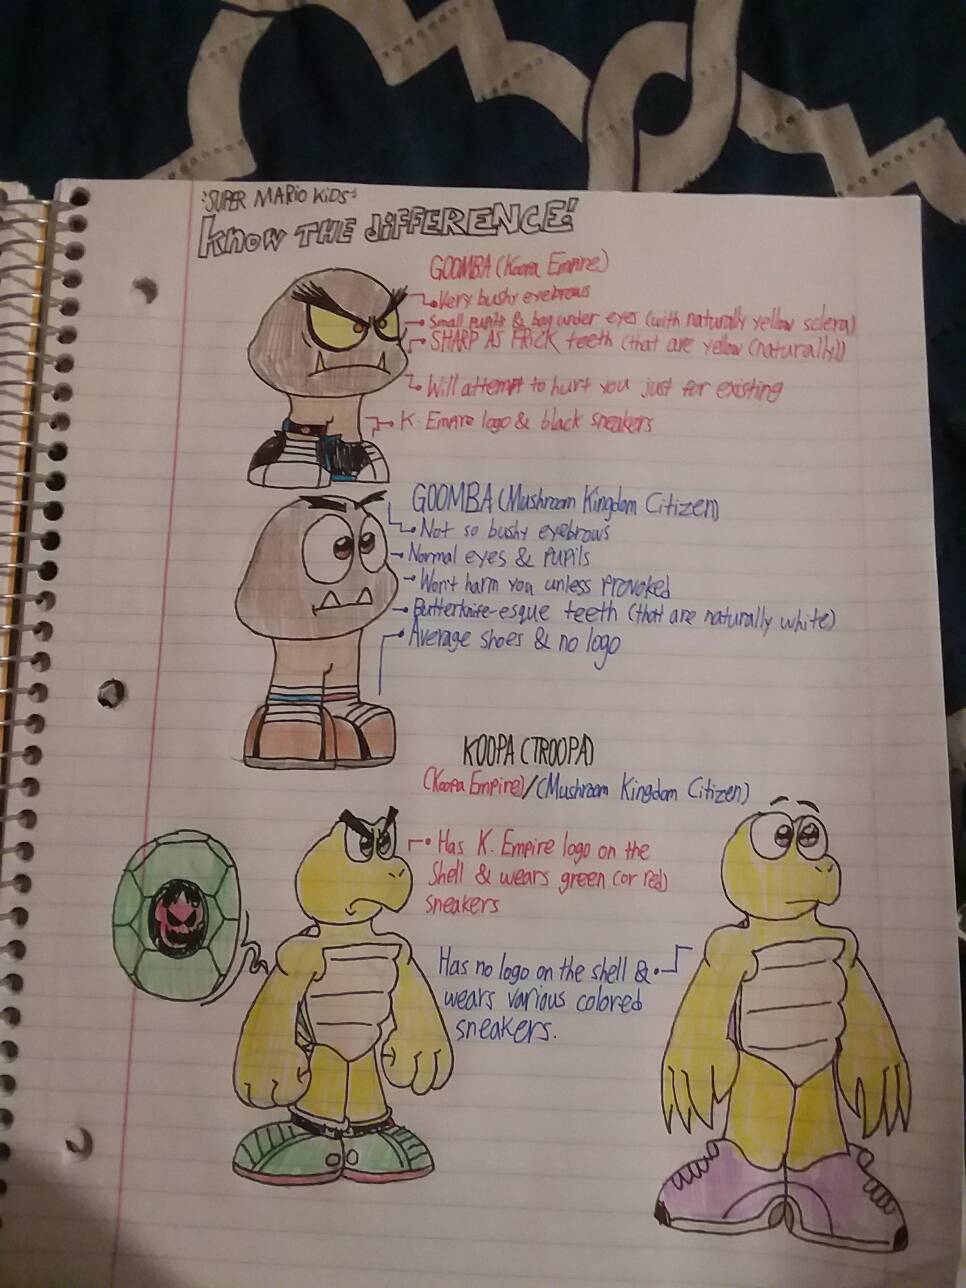 "SUPER MARIO KIDS"
KNOW THE DIFFERENCE!
GOOMBA (Koopa Empire)
Very bushy eyebrows
Small pupils & bag under eyes (with naturally yellow sclera)
SHARP AS FRICK teeth (that are yellow (naturally))
Will attempt to hurt you just for existing
K. Empire logo & black sneakers
GOOMBA (Mushroom Kingdom Citizen)
Not so bushy eyebrows
Normal eyes & pupils
Won't harm you unless provoked
Butterknife-esque teeth (that are naturally white)
Average shoes & no logo
KOOPA (TROOPA)
(Koopa Empire)/(Mushroom Kingdom Citizen)
Has K. Empire logo on the
shell & wears green (or red)
sneakers
Has no logo on the shell &
wears various colored
sneakers.